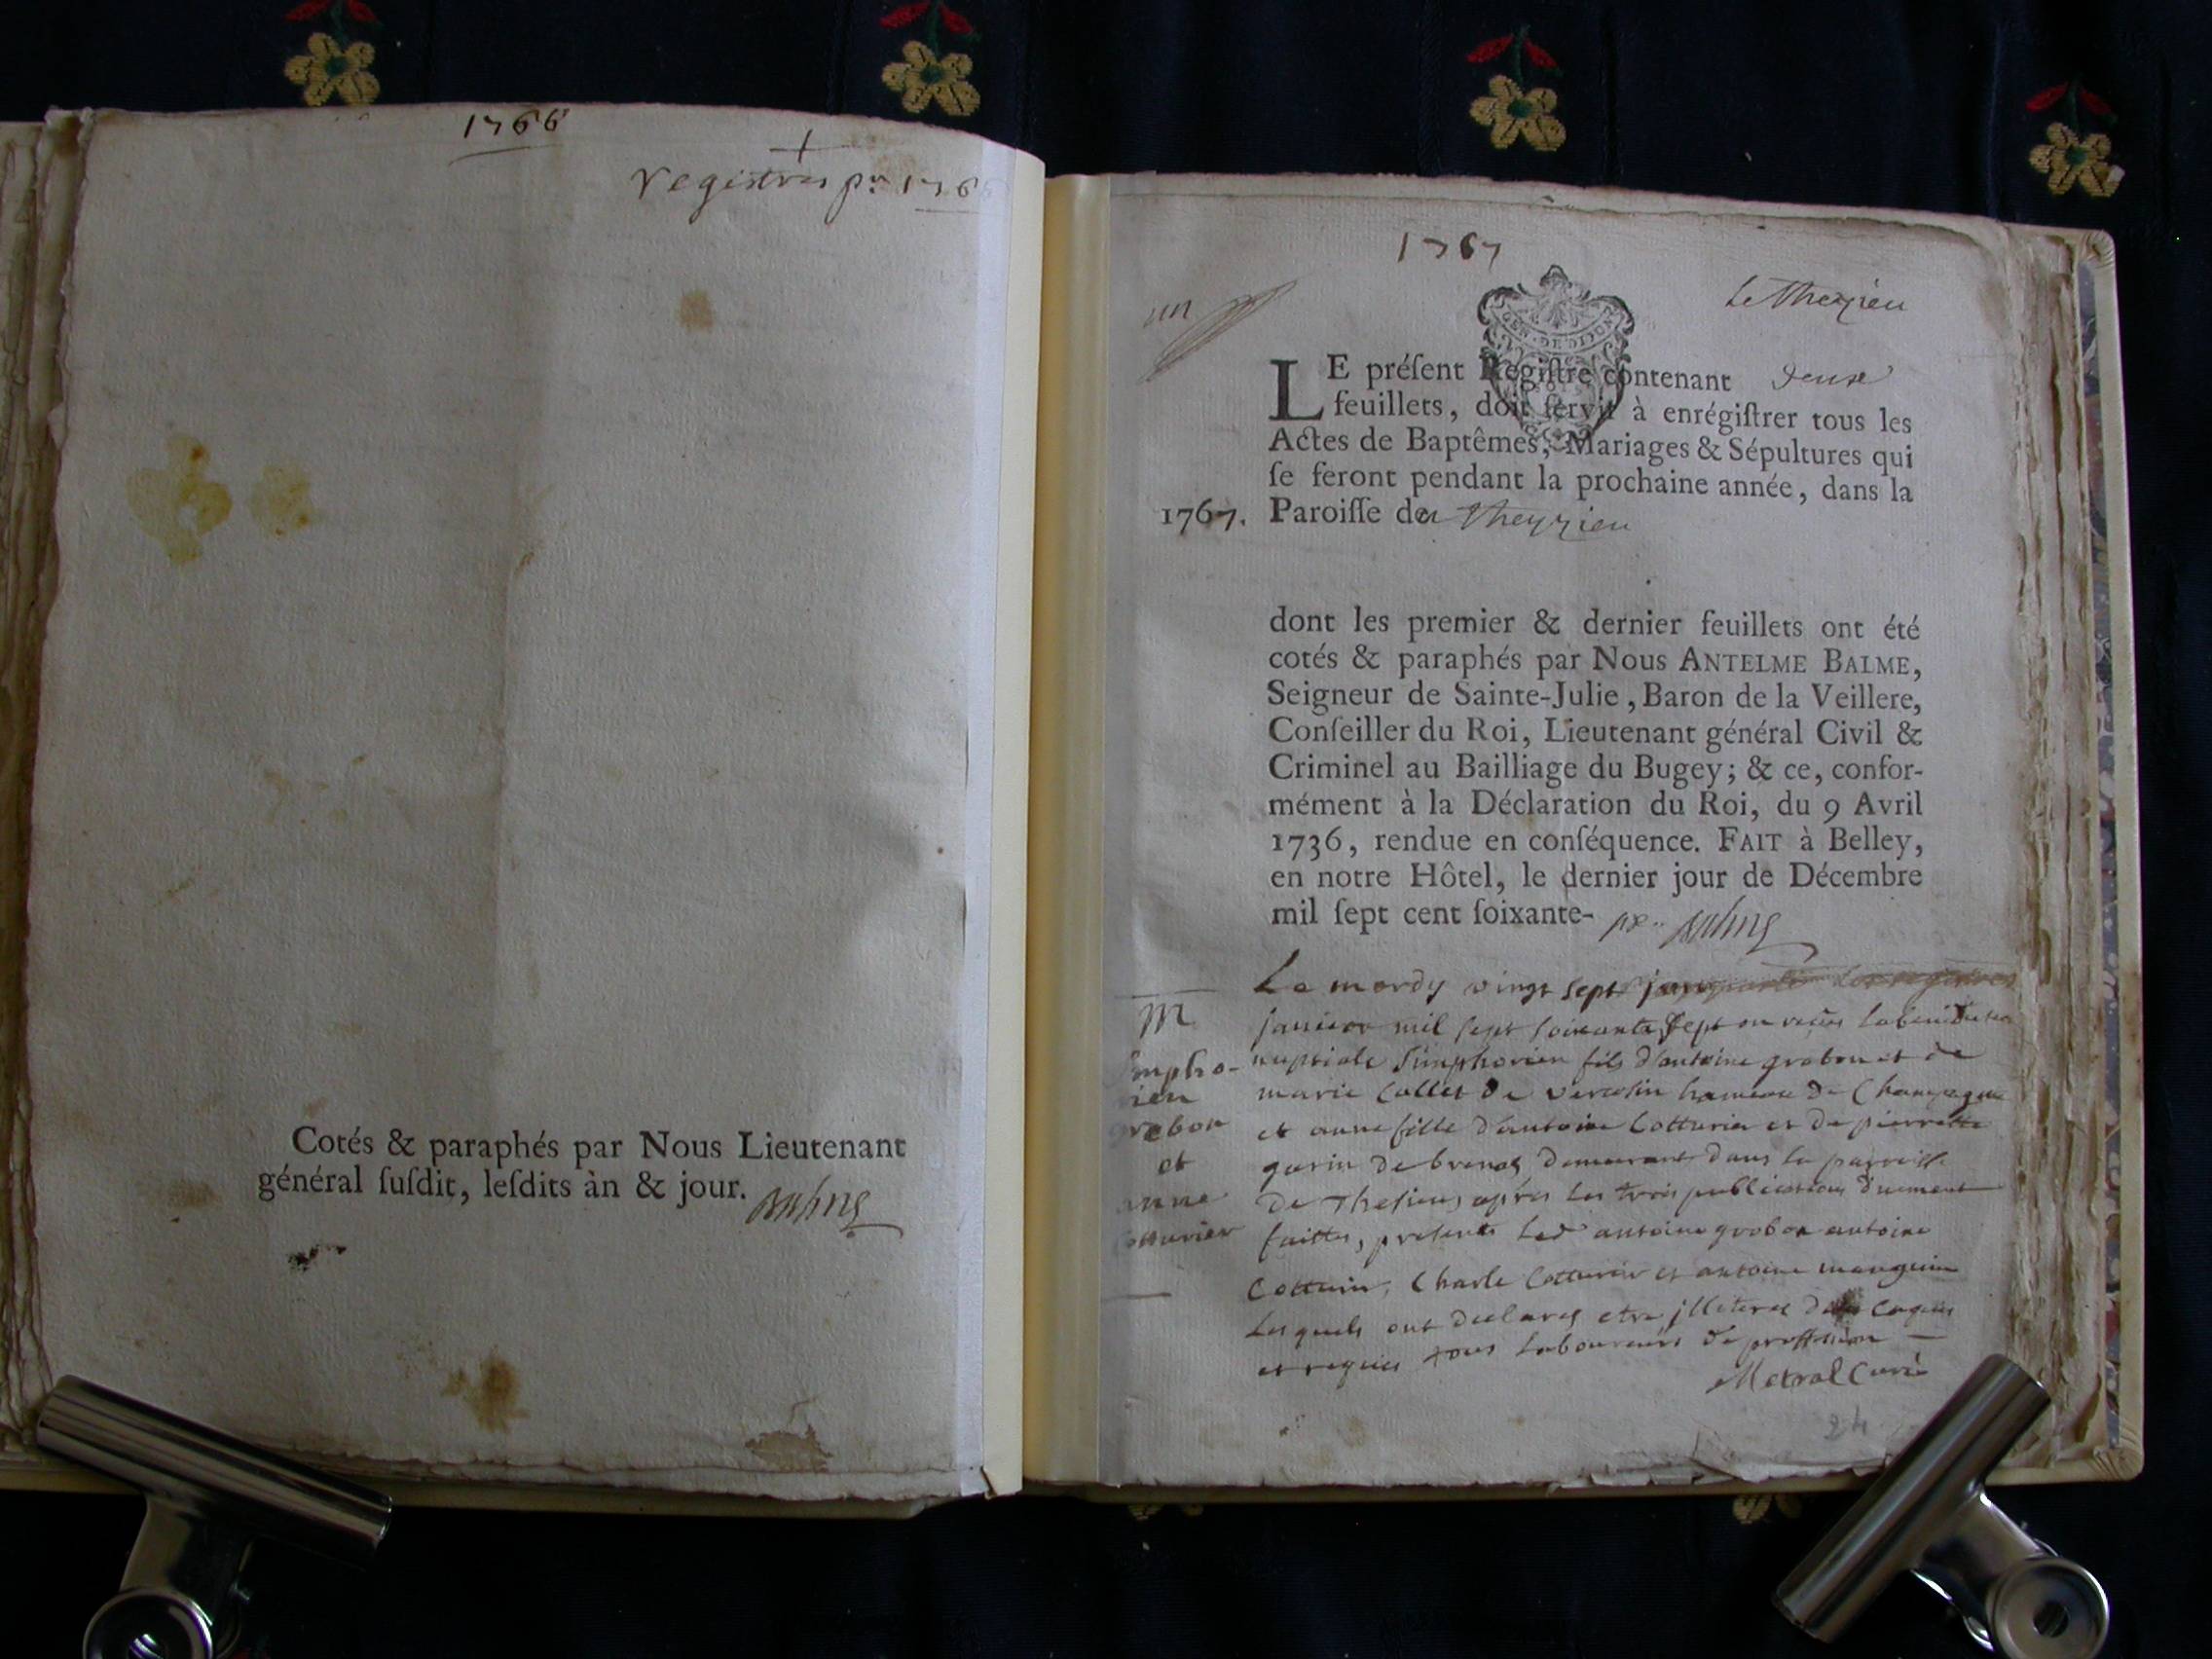 1766
+
registres pr 176
Cotés & paraphés par Nous Lieutenant
général ſuſdit, leſdits àn & jour.
1767
un
Le Theyzieu
GEN. DE DIJON
LE préſent Regiſtre contenant deux
feuillets, doit ſervir à enrégiſtrer tous les
Actes de Baptêmes, Mariages & Sépultures qui
ſe feront pendant la prochaine année, dans la
1767. Paroiſſe de Theyzieu
dont les premier & dernier feuillets ont été
cotés & paraphés par Nous ANTELME BALME,
Seigneur de Sainte-Julie, Baron de la Veillere,
Conſeiller du Roi, Lieutenant général Civil &
Criminel au Bailliage du Bugey; & ce, confor-
mément à la Déclaration du Roi, du 9 Avril
1736, rendue en conſéquence. FAIT à Belley,
en notre Hôtel, le dernier jour de Décembre
mil ſept cent ſoixante-
M
impho-
rien
grobon
et
anne
cotturier
Le mardy vingt sept
janvier mil sept soixante sept on reçus
nuptiale Simphorien fils d'antoine grobon et de
marie Collet de hameau de Champagne
et anne fille d'antoine Cotturier et de pierrette
garin de brenas demeurant dans la paroisse
de Thesieu, après les trois publications duement
faittes, presents led antoine grobon antoine
Cotturier, Charle Cotturier et antoine mangüin
Lesquels ont declares etre jlleteres de ce
et requis tous laboureurs de proffession
Metral Curé
24